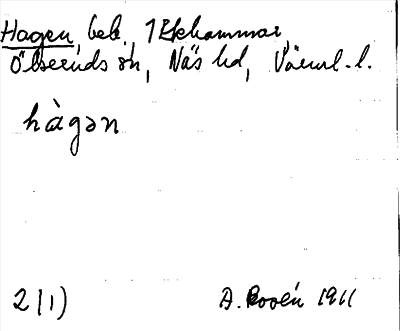 Hagen, beb. 1 Ekhammar,
Ölseruds sn, Näs hd, Värml. l.
hàgən
2(1)
A. Rosén 1911